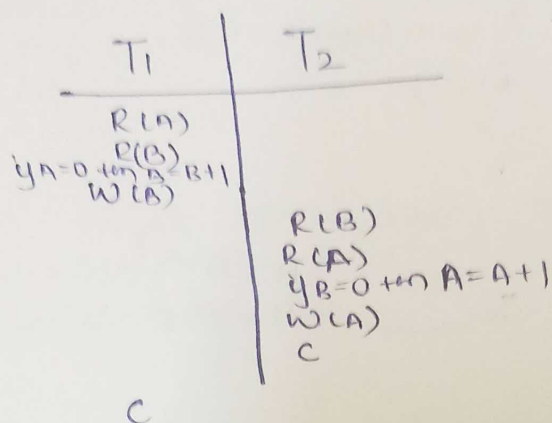 T1 T2
R(A)
R(B)
if A=0 then B=B+1
W(B)
R(B)
R(A)
if B=0 then A=A+1
W(A)
C
C